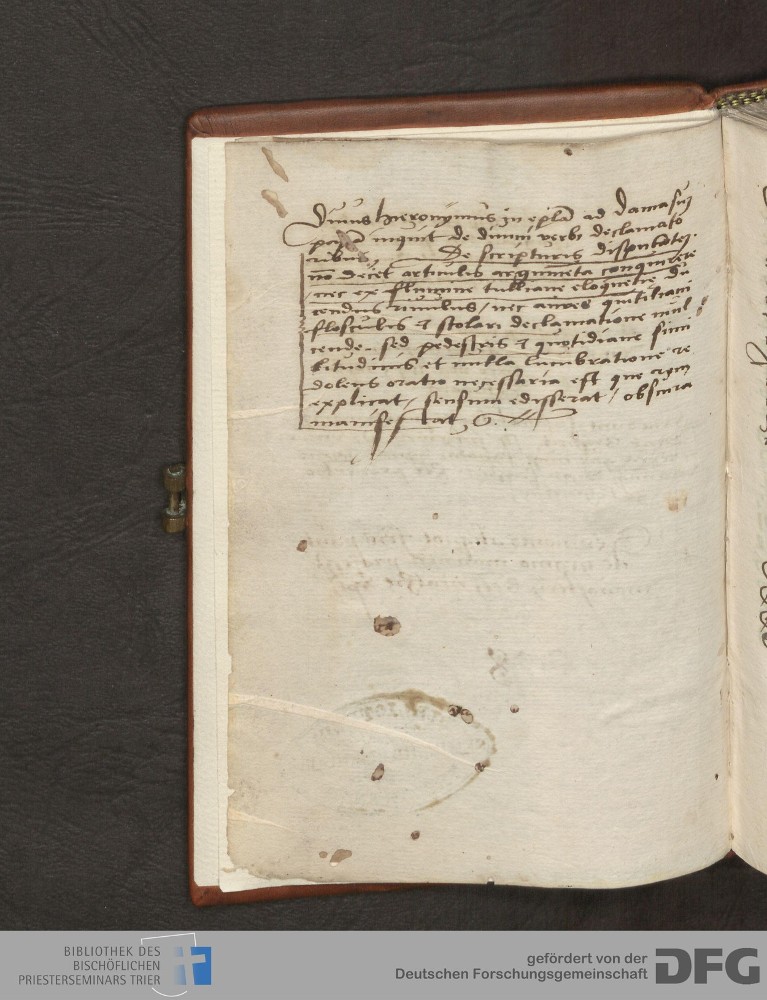 Diuus hieronymus in epl̄a ad damasū
papā inquit de diuini verbi declamato
ribus, De scripturis disputātes.
nō decet articulis argumēta conquirere
/nec ex flumine tulliane eloquētie du
cendus riuulus / nec aures quītiliani
flosculis & scolari declamatione mul
cende. sed pedestris & quotidiane simi
litudinis et nulla lucubratione re
dolens oratio necessaria est que rem
explicat / sensum edisserat / obscura
manifestat
BIBLIOTHEK DES
BISCHÖFLICHEN
PRIESTERSEMINARS TRIER
gefördert von der
Deutschen Forschungsgemeinschaft
DFG